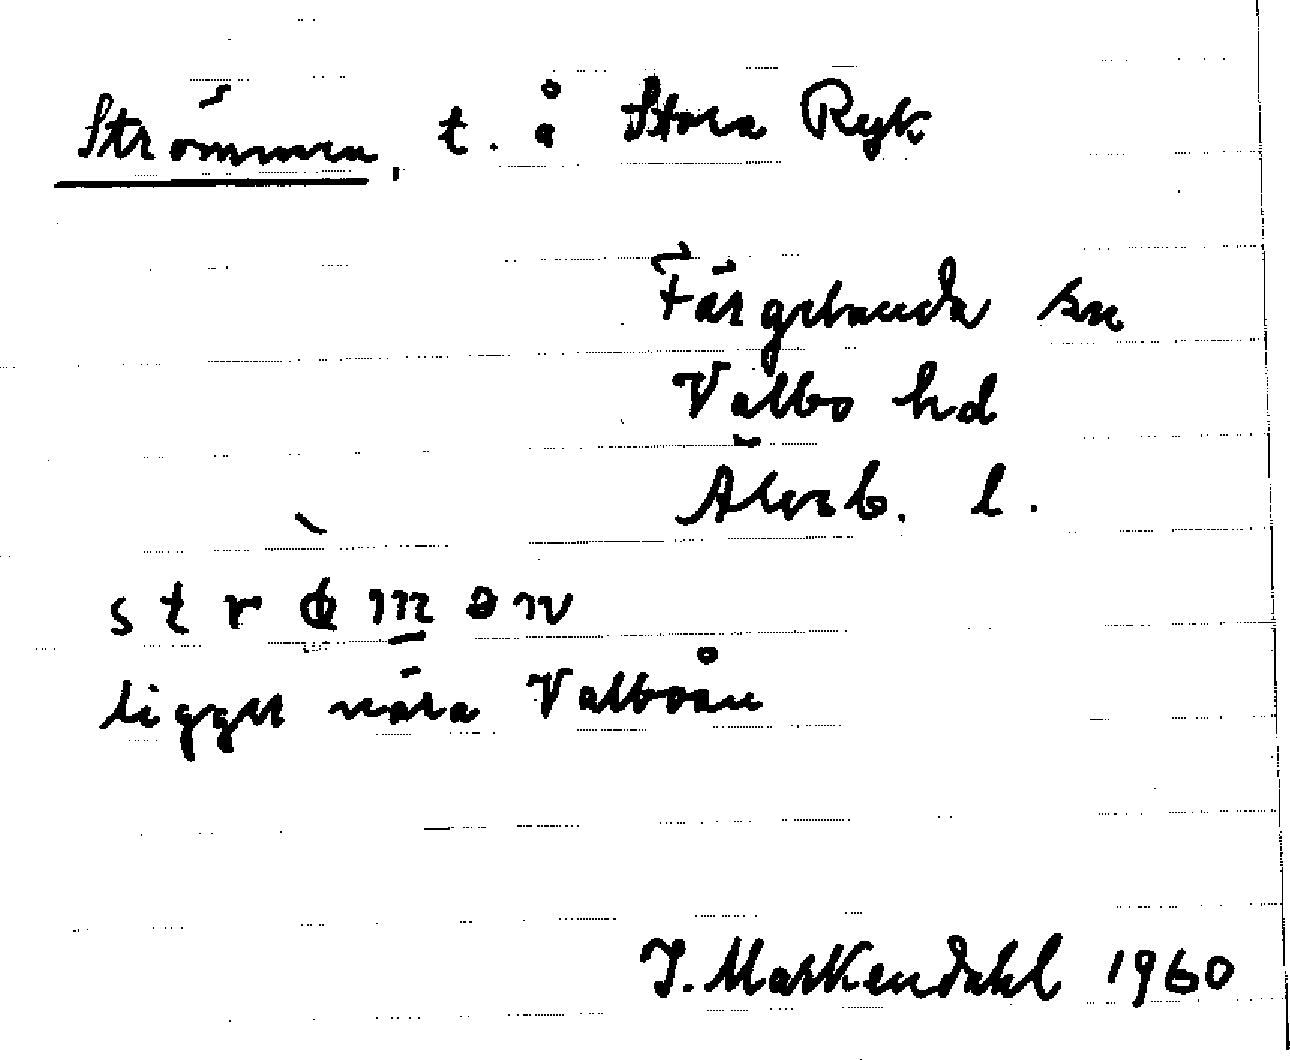 Strömmen, t. å Stora Ryk
Färgelanda sn
Valbo hd
Älvsb. l.
strø̀m̲ən
ligger nära Valboån
I. Markendahl 1960